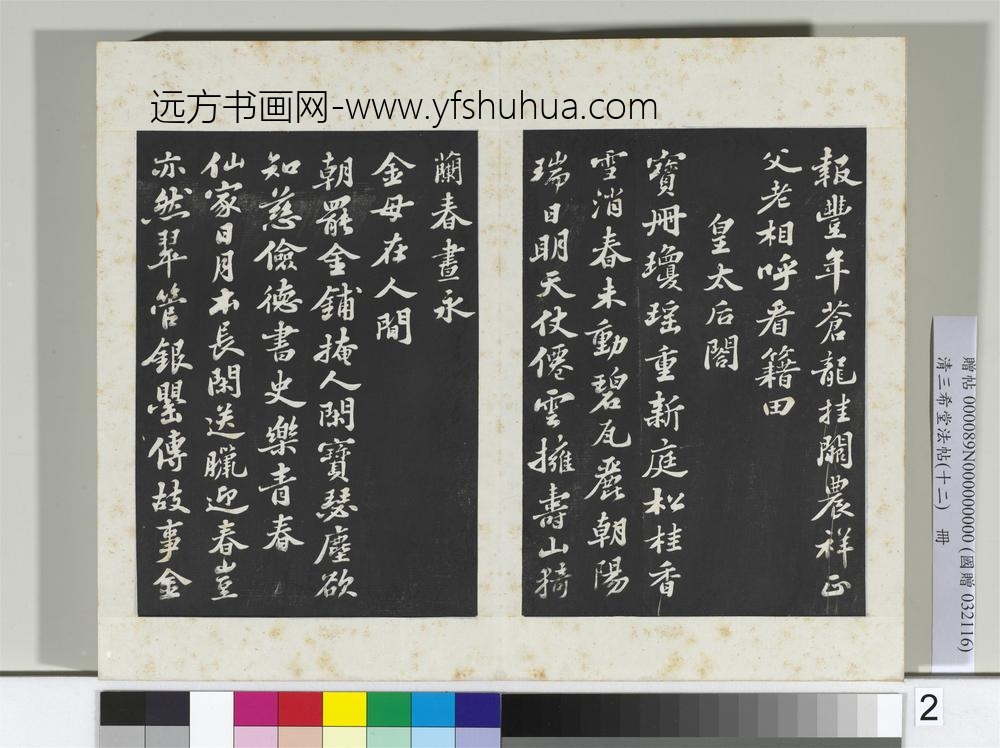 远方书画网-www.yfshuhua.com
報豐年蒼龍挂闕農祥正
父老相呼看籍田
皇太后閤
寶冊瓊瑤重新庭松桂香
雪消春未動碧瓦麗朝陽
瑞日明天仗僊雲擁壽山猗
蘭春晝永
金母在人間
朝罷金鋪掩人閑寶瑟塵欲
知慈儉德書史樂青春
仙家日月本長閑送臘迎春豈
亦然翠管銀罌傳故事金
贈帖 000089N000000000 (國贈 032116)
清三希堂法帖(十二) 冊
2